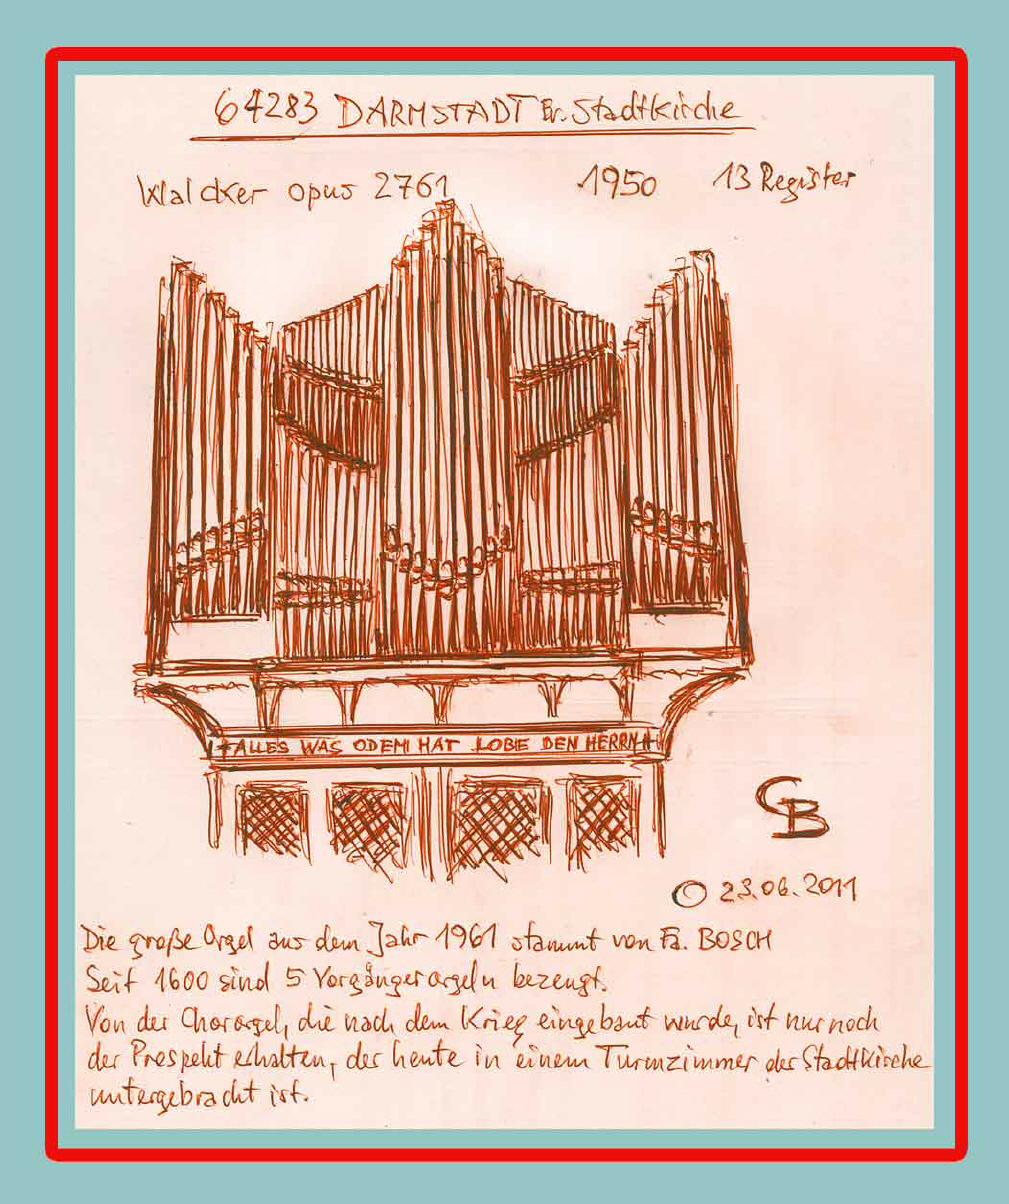 64283 DARMSTADT Ev. Stadtkirche
Walcker opus 2761 1950 13 Register
ALLES WAS ODEM HAT LOBE DEN HERRN
CB
23.06.2011
Die große Orgel aus dem Jahr 1961 stammt von Fa. BOSCH
Seit 1600 sind 5 Vorgängerorgeln bezeugt.
Von der Chororgel, die nach dem Krieg eingebaut wurde, ist nur noch
der Prospekt erhalten, der heute in einem Turmzimmer der Stadtkirche
untergebracht ist.